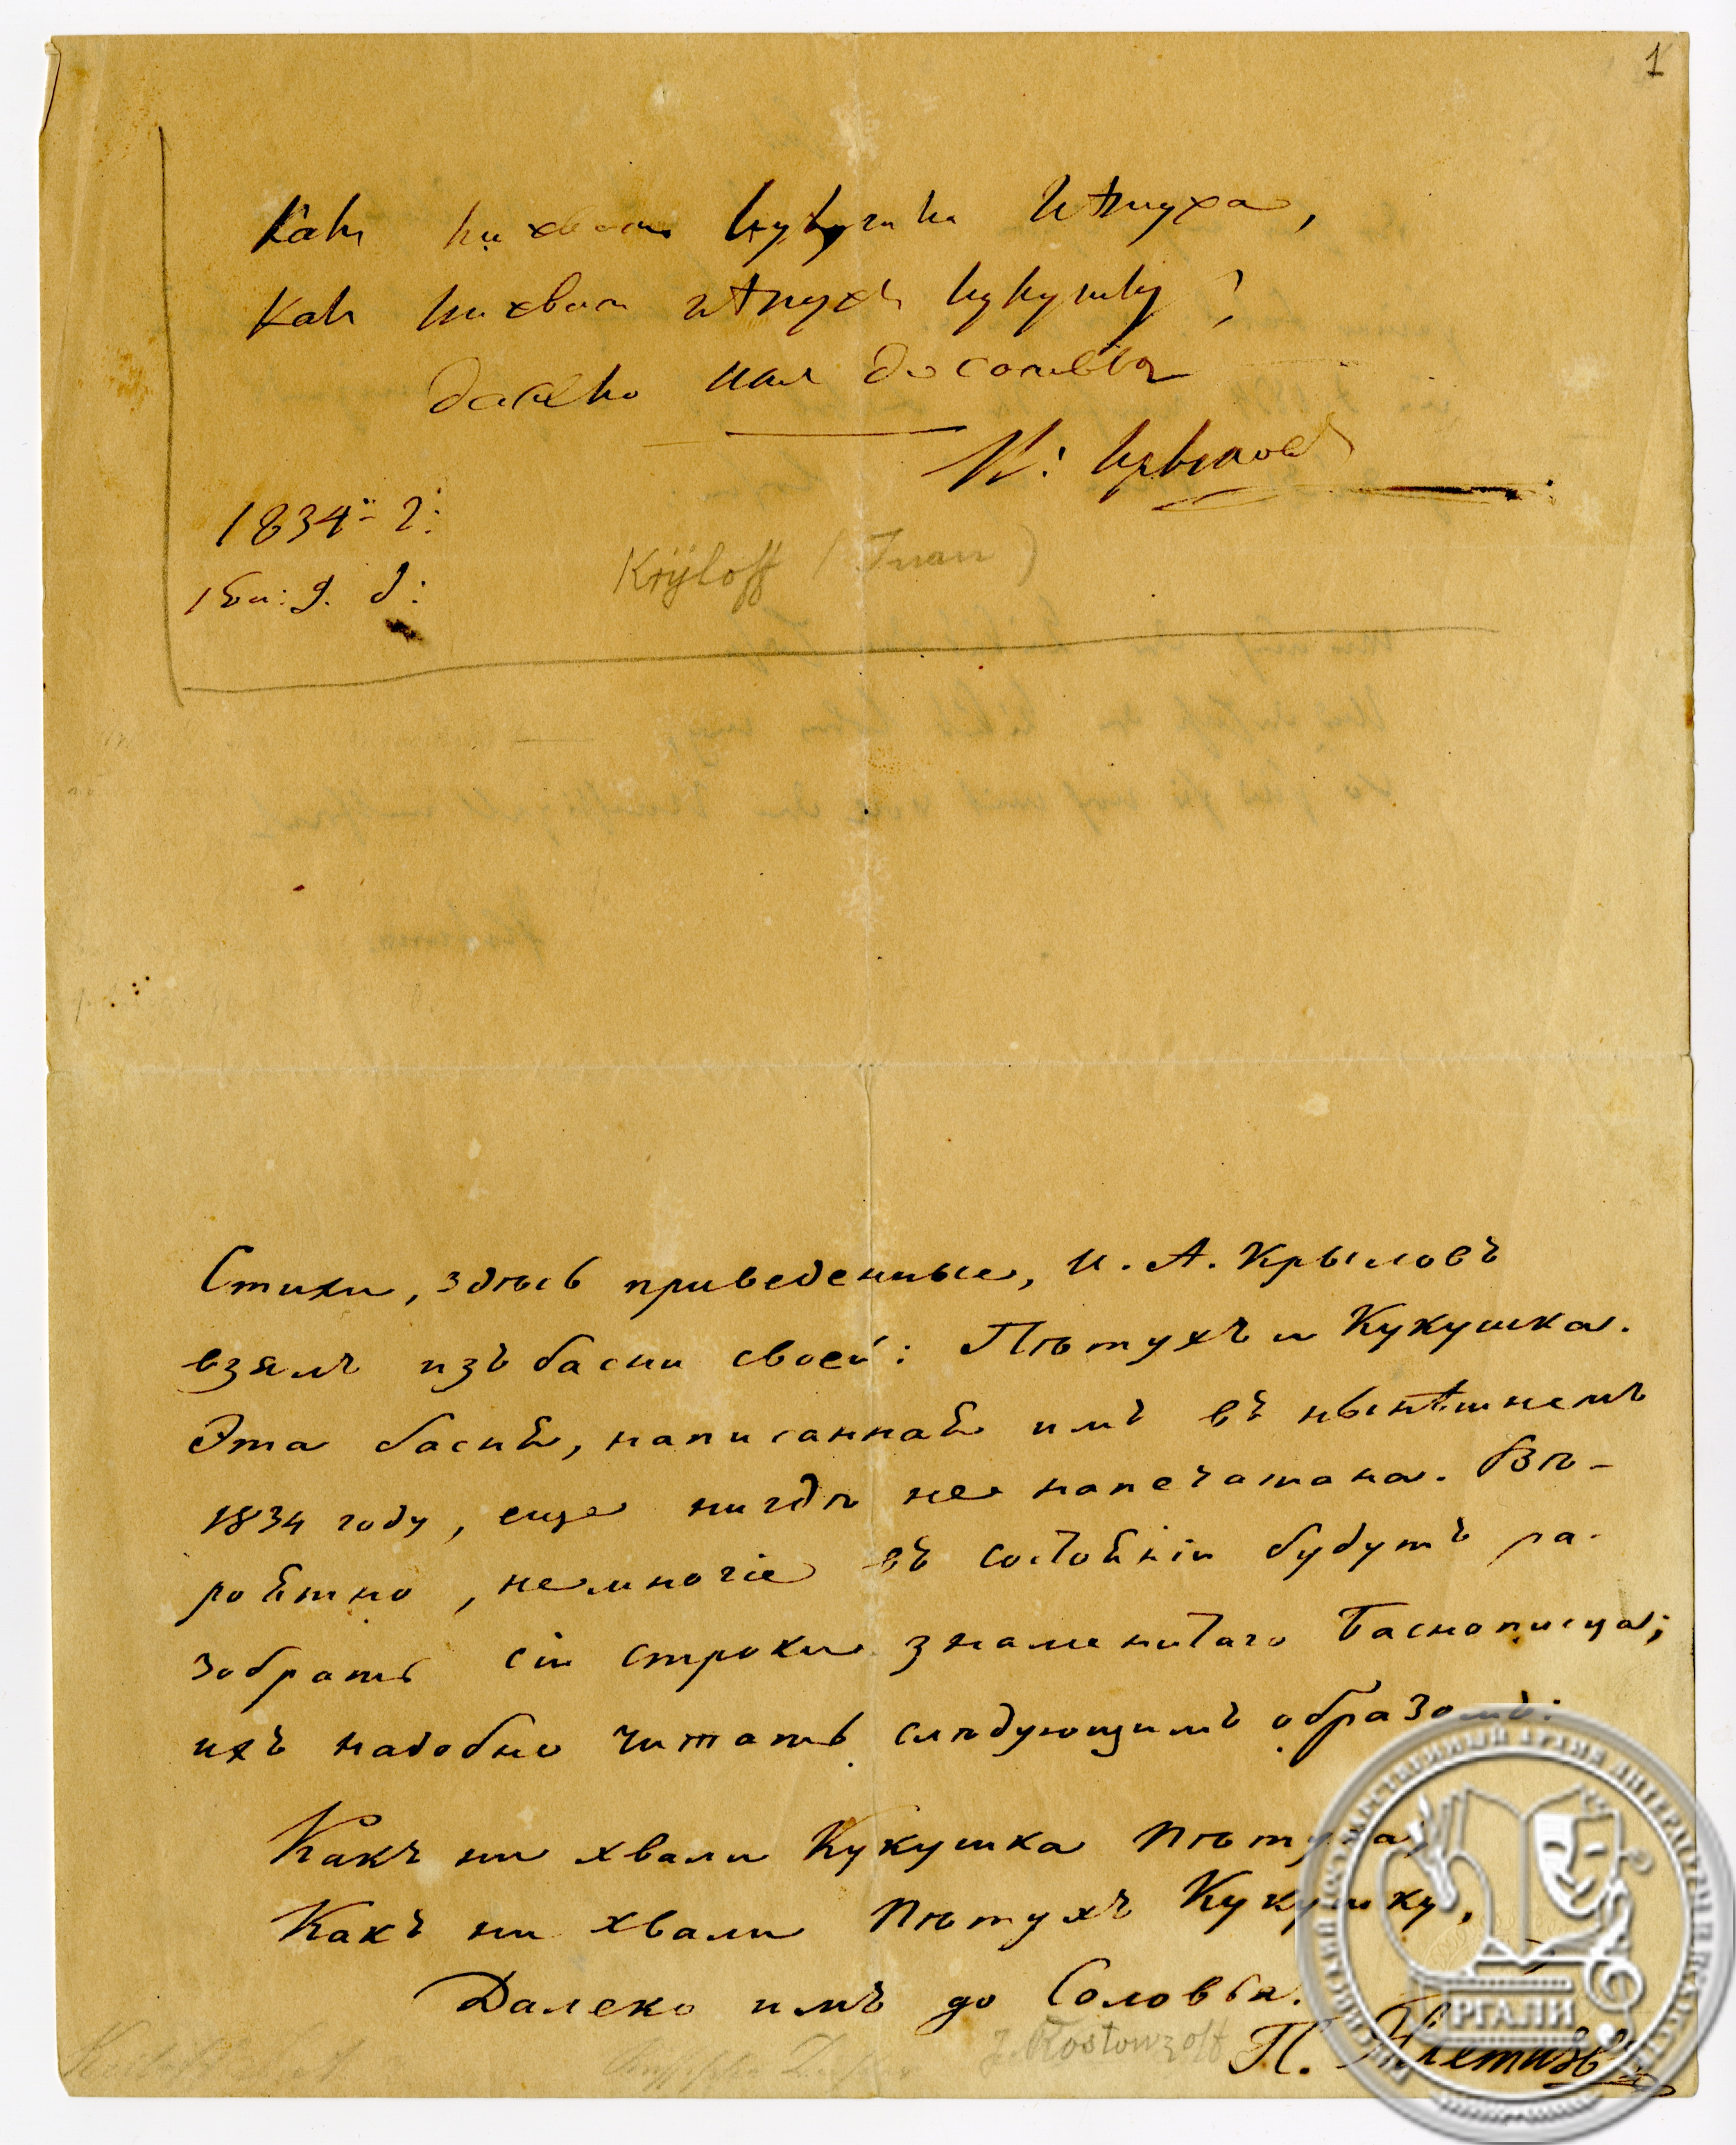 1
Какъ ни хвали кукушка пѣтуха,
Какъ ни хвали пѣтухъ кукушку,
далеко имъ до соловья
И: Крыловъ
1834: г:
Krÿloff (Ivan)
Стихи, здѣсь приведенные, И. А. Крыловъ
взялъ изъ басни своей: Пѣтухъ и Кукушка.
Эта басня, написанная имъ въ нынѣшнемъ
1834 году, еще нигдѣ не напечатана. Вѣ-
роятно, немногіе въ состояніи будутъ ра-
зобрать сіи строки знаменитаго Баснописца;
ихъ надобно читать слѣдующимъ образомъ:
Какъ ни хвали Кукушка Пѣтуха,
Какъ ни хвали Пѣтухъ Кукушку,
Далеко имъ до Соловья.
J. Rostowzoff
П. Плетневъ
РГАЛИ